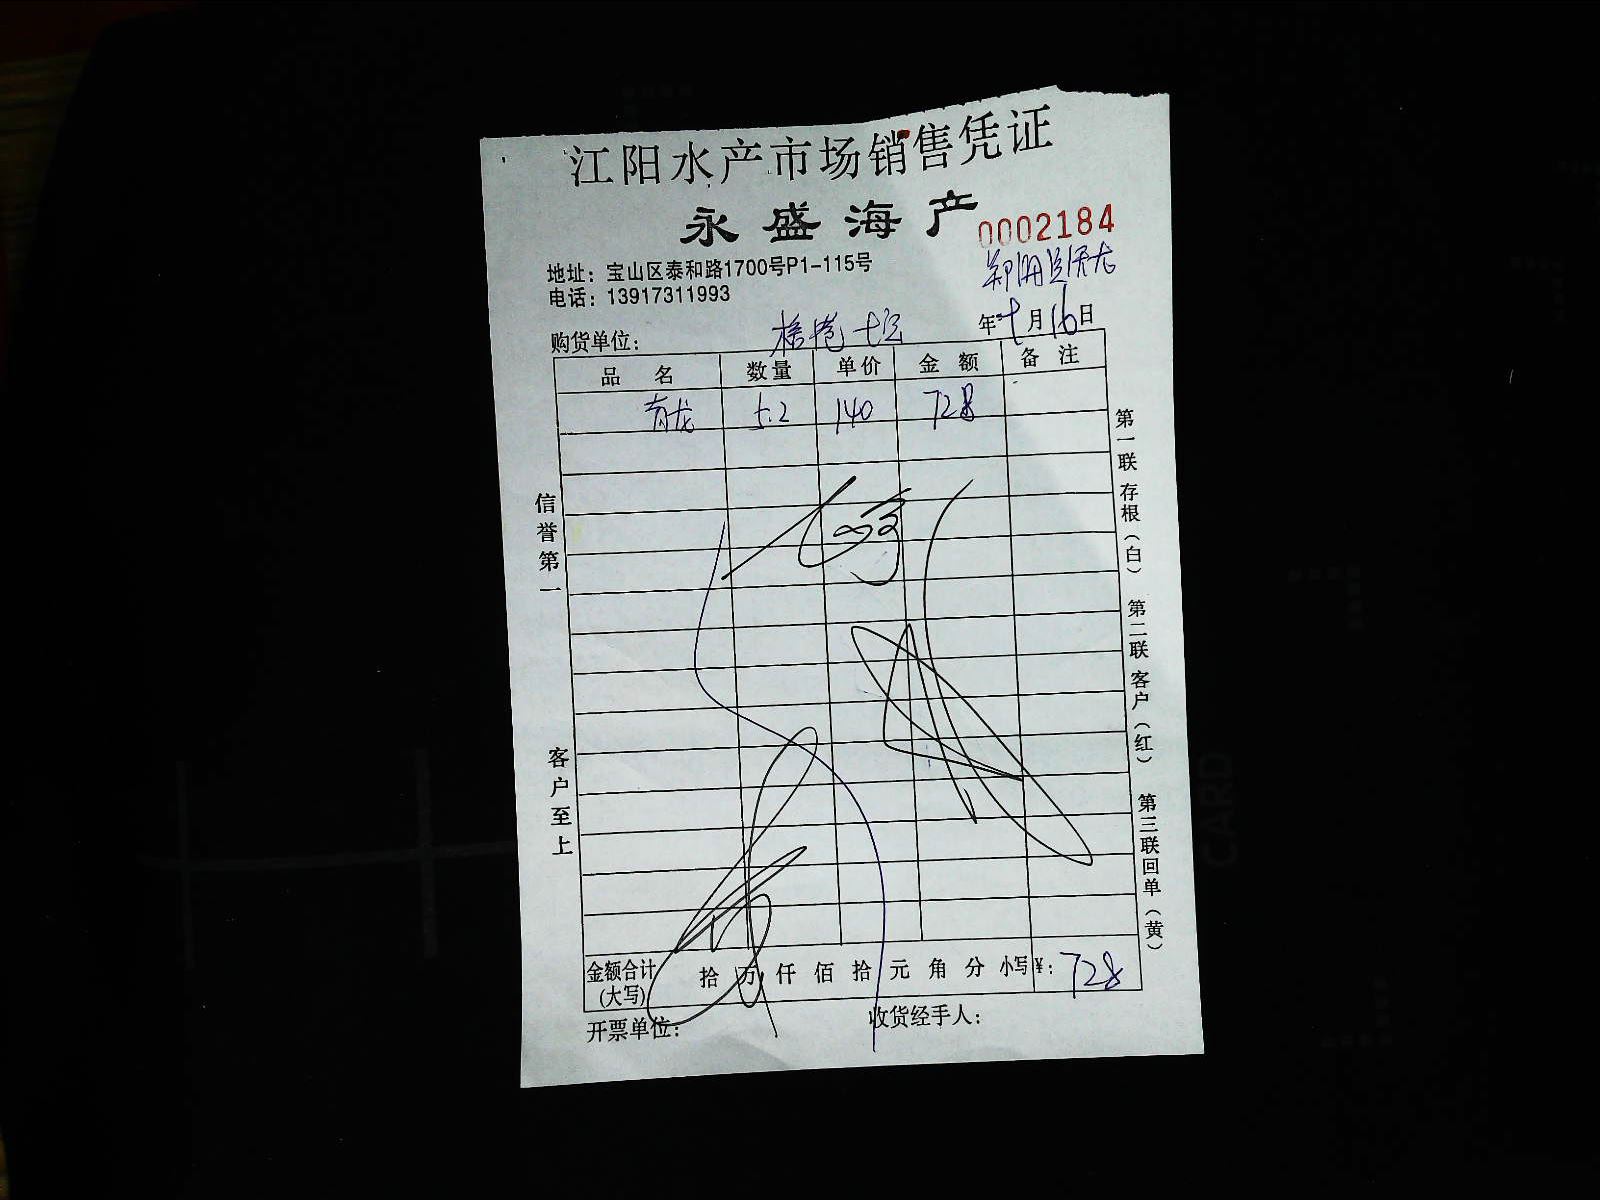 江阳水产市场销售凭证
永盛海产
0002184
地址：宝山区泰和路1700号P1-115号
电话：13917311993
购货单位：
年 七月16日
品名 数量 单价 金额 备注
青龙 5.2 140 728
信誉第一
客户至上
第一联存根（白）
第二联客户（红）
第三联回单（黄）
金额合计(大写) 拾 万 仟 佰 拾 元 角 分 小写¥：728
开票单位： 收货经手人：
CARD